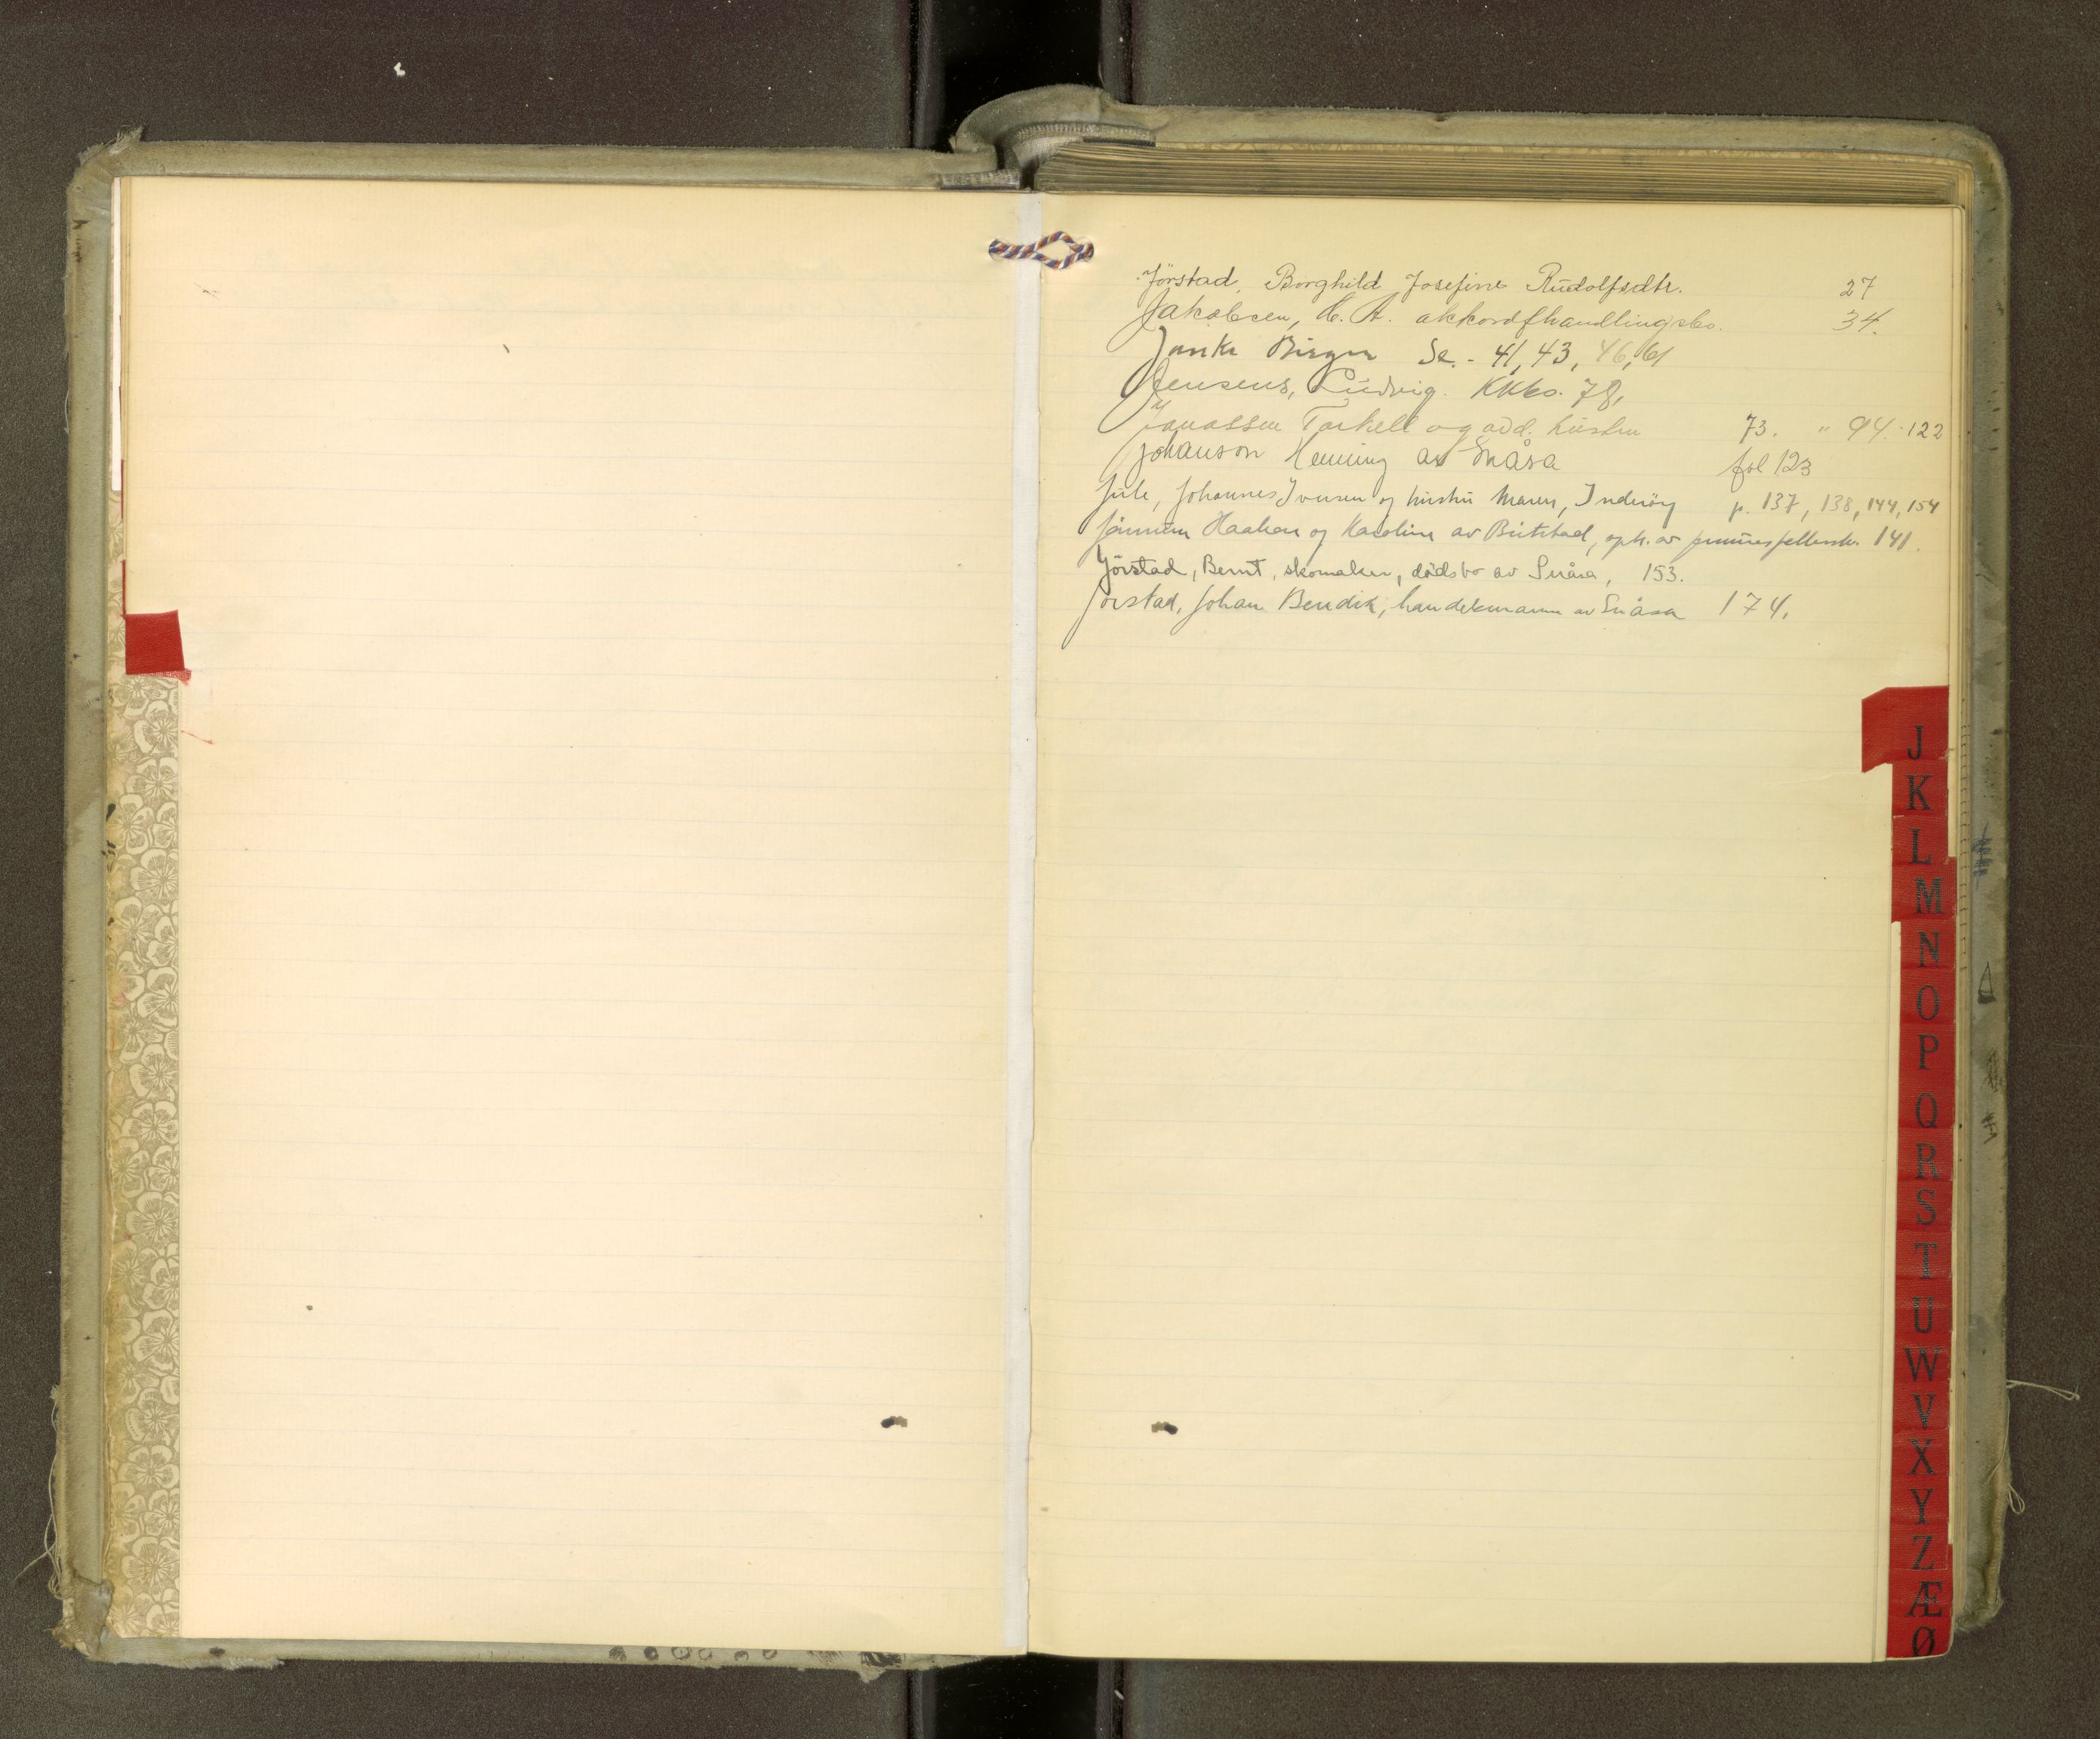 Jörstad, Borghild Josefine Rudolfsdtr. 27
Jakobsen, H. A. akkordfhandlingsbo. 34.
Birger Se. - 41, 43, 46, 61
Jensens, Ludvig. KKbo. 78,
Jonassen Torkell og avd. hustru 73. " 94. 122
Johanson Henning av Snåsa fol 123
Johannes Iversen og hustru Maren, Inderöy p. 137, 138, 144, 154
Haakon og Karoline av Beitstad, oph. av 141.
Jörstad, Bernt, skomaker, dödsbo av Snåsa, 153.
Jörstad, Johan Bendik, handelsmann av Snåsa 174.
J
K
L
M
N
O
P
Q
R
S
T
U
W
V
X
Y
Z
Æ
Ø